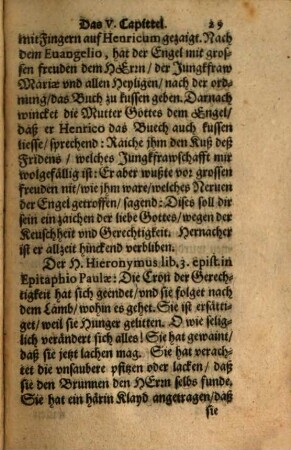 Das V. Capittel. 29
mit Fingern auf Henricum gezaigt. Nach
dem Euangelio, hat der Engel mit gros-
sen freuden dem HErrn/ der Jungkfraw
Mariæ vnd allen Heyligen/ nach der ord-
nung/ das Buch zu kussen geben. Darnach
wincket die Mutter Gottes dem Engel/
daß er Henrico das Buech auch kussen
liesse/ sprechend: Raiche jhm den Kuß deß
Fridens / welches Jungkfrawschafft mir
wolgefällig ist: Er aber wußte vor grossen
freuden nit/ wie jhm ware/ welches Neruen
der Engel getroffen/ sagend: Dises soll dir
sein ein zaichen der liebe Gottes/ wegen der
Keuschheit vnd Gerechtigkeit. Hernacher
ist er allzeit hinckend verbliben.
Der H. Hieronymus lib. 3. epist. in
Epitaphio Paulæ: Die Cron der Gerech-
tigkeit hat sich geendet/ vnd sie folget nach
dem Lamb/ wohin es gehet. Sie ist ersätti-
get/ weil sie Hunger gelitten. O wie selig-
lich verändert sich alles! Sie hat gewaint/
daß sie jetzt lachen mag. Sie hat verach-
tet die vnsaubere pfitzen oder lacken/ daß
sie den Brunnen den HErrn selbs funde.
Sie hat ein härin Klayd angetragen/ daß
sie